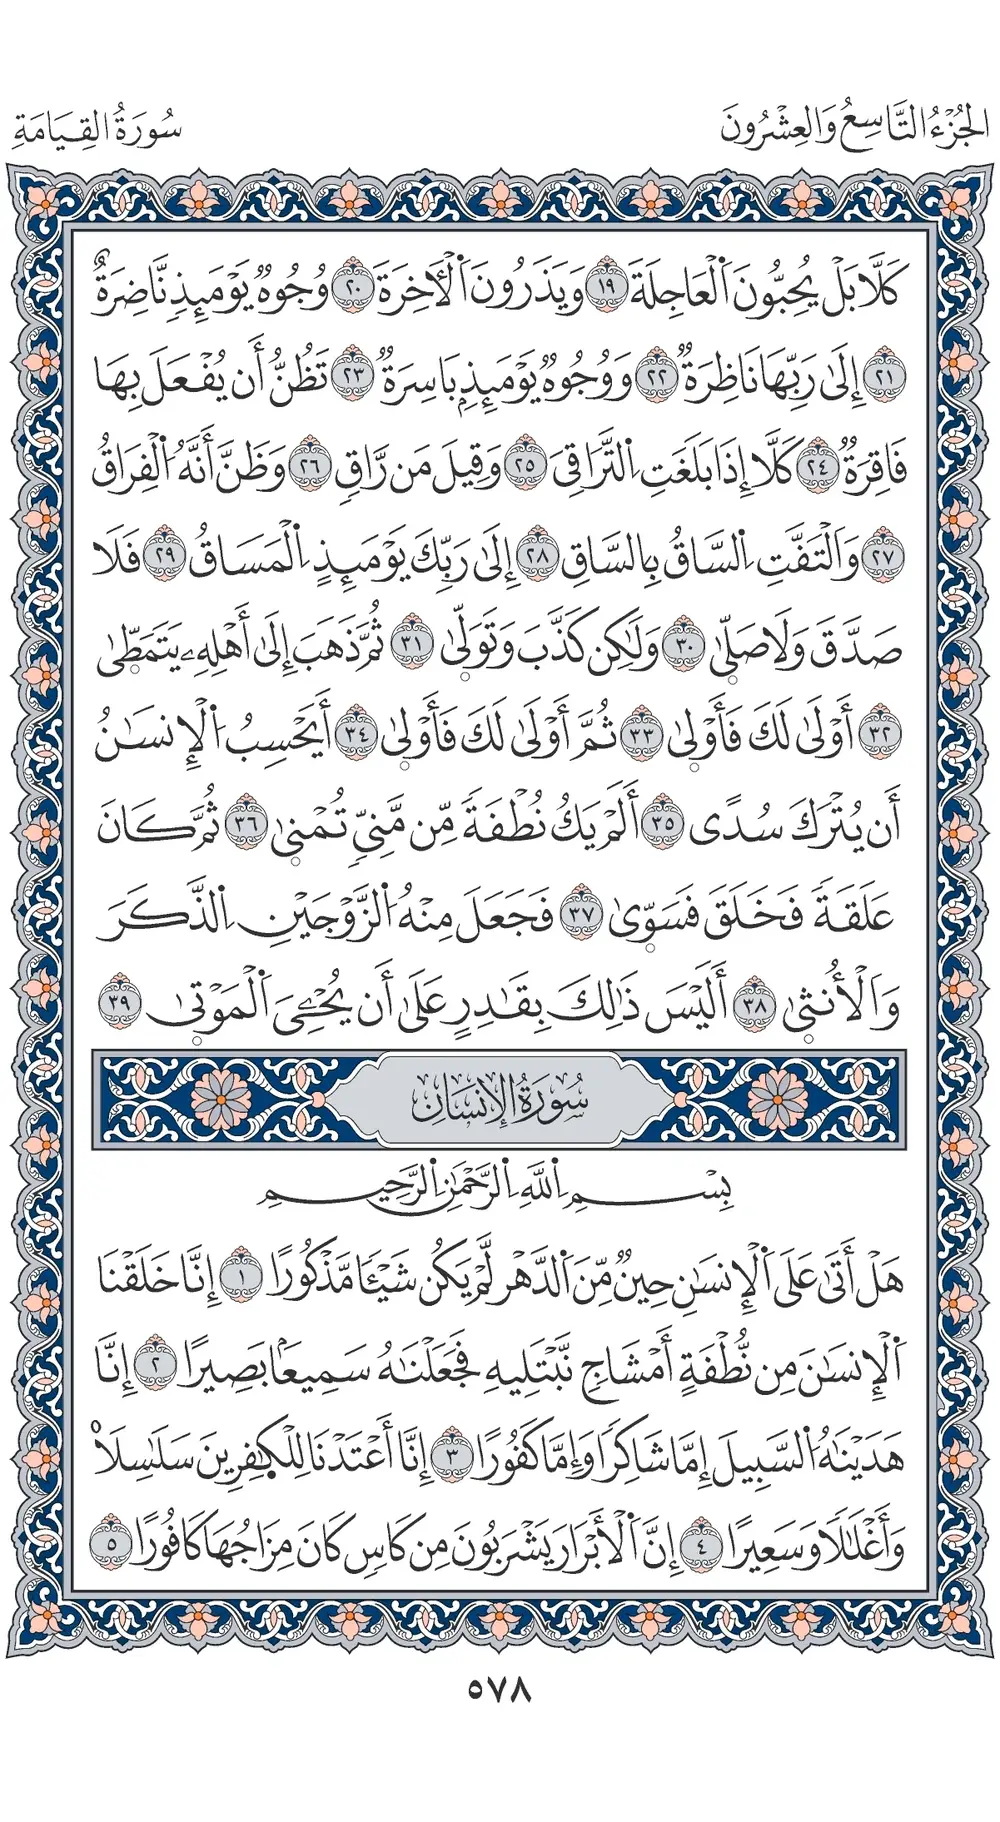 الجُزْءُ التَّاسِعُ وَالعِشْرُونَ
سُورَةُ القِيَامَةِ
كَلَّا بَلْ يُحِبُّونَ اَ۬لْعَاجِلَةَ ١٩ وَيَذَرُونَ اَ۬لْأٓخِرَةَ ٢٠ وُجُوهٞ يَوْمَئِذٖ نَّاضِرَةٌ
٢١ إِلَىٰ رَبِّهَا نَاظِرَةٞ ٢٢ وَوُجُوهٞ يَوْمَئِذِۢ بَاسِرَةٞ ٢٣ تَظُنُّ أَن يُفْعَلَ بِهَا
فَاقِرَةٞ ٢٤ كَلَّا إِذَا بَلَغَتِ اِ۬لتَّرَاقِيَ ٢٥ وَقِيلَ مَن رَّاقٖ ٢٦ وَظَنَّ أَنَّهُ اُ۬لْفِرَاقُ
٢٧ وَالْتَفَّتِ اِ۬لسَّاقُ بِالسَّاقِ ٢٨ إِلَىٰ رَبِّكَ يَوْمَئِذٍ اِ۬لْمَسَاقُ ٢٩ فَلَا
صَدَّقَ وَلَا صَلّ۪ىٰ ٣٠ وَلَٰكِن كَذَّبَ وَتَوَلّ۪ىٰ ٣١ ثُمَّ ذَهَبَ إِلَىٰ أَهْلِهِۦ يَتَمَطّ۪ىٰ
٣٢ أَوْلَىٰ لَكَ فَأَوْل۪ىٰ ٣٣ ثُمَّ أَوْلَىٰ لَكَ فَأَوْل۪ىٰ ٣٤ أَيَحْسِبُ اُ۬لْإِنسَٰنُ
أَن يُتْرَكَ سُدًى ٣٥ أَلَمْ يَكُ نُطْفَةٗ مِّن مَّنِيّٖ تُمْن۪ىٰ ٣٦ ثُمَّ كَانَ
عَلَقَةٗ فَخَلَقَ فَسَوّ۪ىٰ ٣٧ فَجَعَلَ مِنْهُ اُ۬لزَّوْجَيْنِ اِ۬لذَّكَرَ
وَالْأُنث۪ىٰ ٣٨ أَلَيْسَ ذَٰلِكَ بِقَٰدِرٍ عَلَىٰ أَن يُحْـِۧيَ اَ۬لْمَوْت۪ىٰ ٣٩
سُورَةُ الإِنسَانِ
بِسْمِ اِ۬للَّهِ اِ۬لرَّحْمَٰنِ اِ۬لرَّحِيمِ
هَلْ أَتَىٰ عَلَى اَ۬لْإِنسَٰنِ حِينٞ مِّنَ اَ۬لدَّهْرِ لَمْ يَكُن شَيْـٔٗا مَّذْكُورًا ١ إِنَّا خَلَقْنَا
اَ۬لْإِنسَٰنَ مِن نُّطْفَةٍ أَمْشَاجٖ نَّبْتَلِيهِ فَجَعَلْنَٰهُ سَمِيعَۢا بَصِيرًا ٢ إِنَّا
هَدَيْنَٰهُ اُ۬لسَّبِيلَ إِمَّا شَاكِرٗا وَإِمَّا كَفُورًا ٣ إِنَّا أَعْتَدْنَا لِلْكٰ۪فِرِينَ سَلَٰسِلَاْ
وَأَغْلَٰلٗا وَسَعِيرًا ٤ إِنَّ اَ۬لْأَبْرَارَ يَشْرَبُونَ مِن كَاسٖ كَانَ مِزَاجُهَا كَافُورًا ٥
٥٧٨